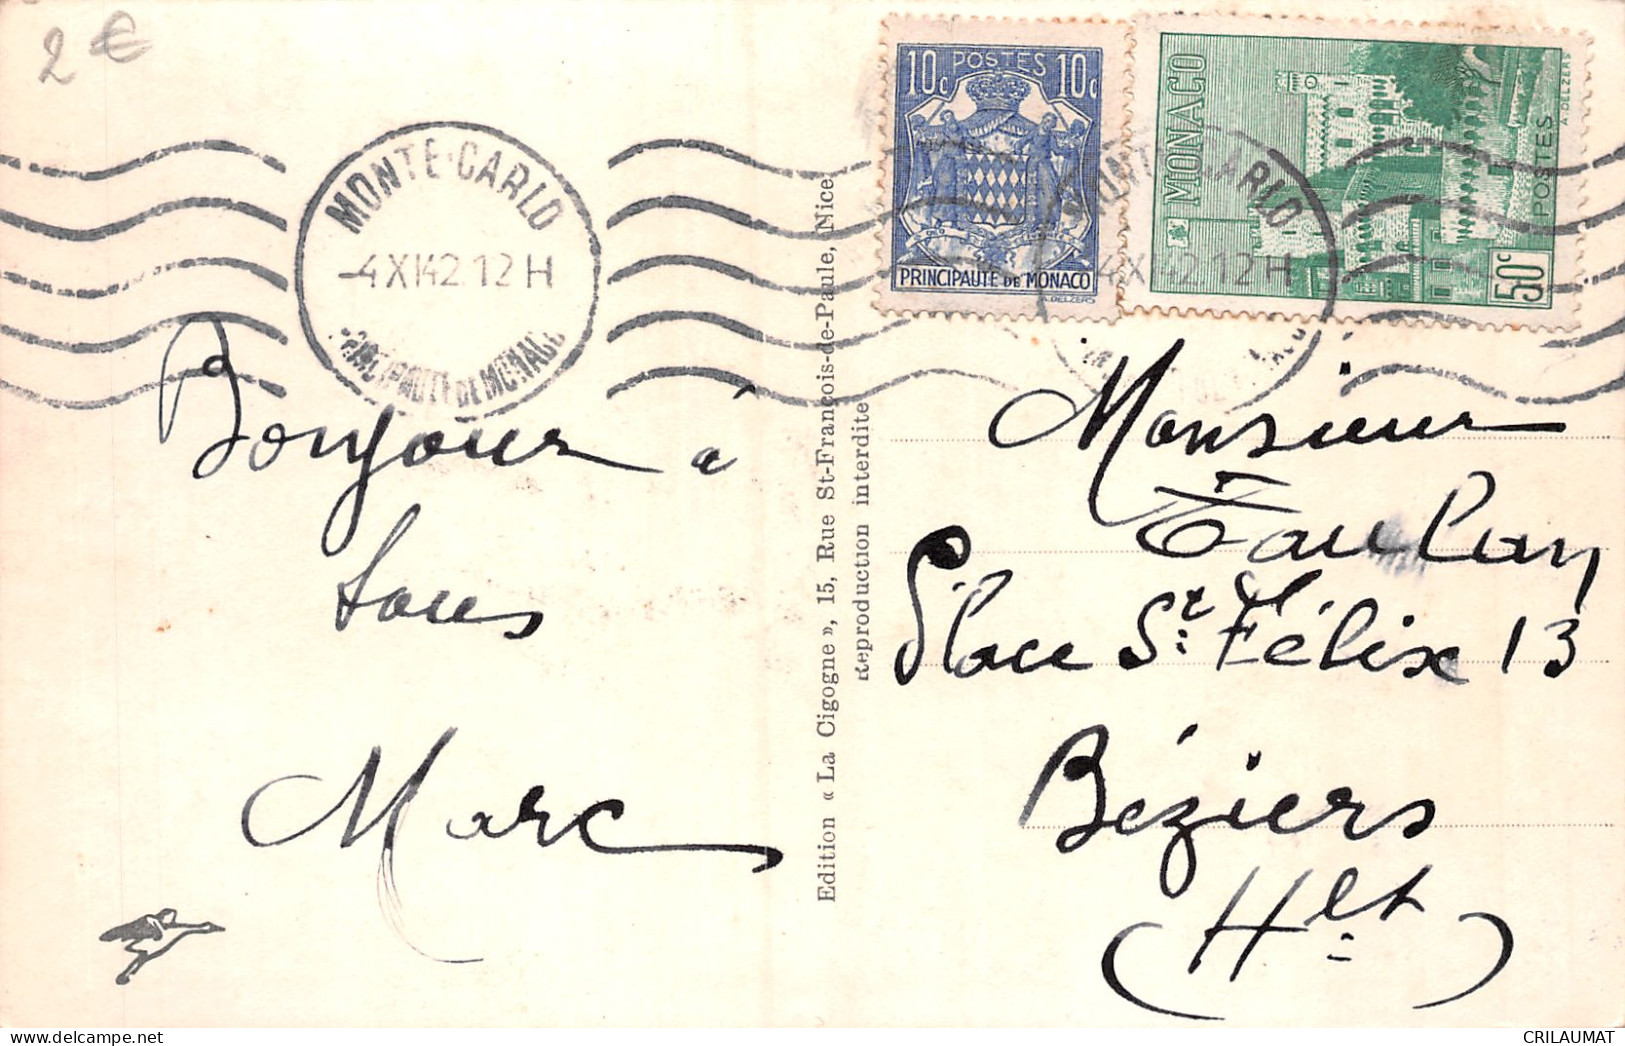 2 €
MONTE-CARLO
-4 XI 42 12 H
PRINCIPAUTÉ DE MONACO
10c POSTES 10c
PRINCIPAUTÉ DE MONACO
A. DELZERS
MONACO
POSTES
50c
A. DELZERS
MONTE-CARLO
4 XI 42 12 H
Bonjour à
tous
Marc
Edition « La Cigogne », 15, Rue St-François-de-Paule, Nice
Reproduction interdite
Monsieur
Place St. Félix 13
Béziers
(Hlt)
CRILAUMAT